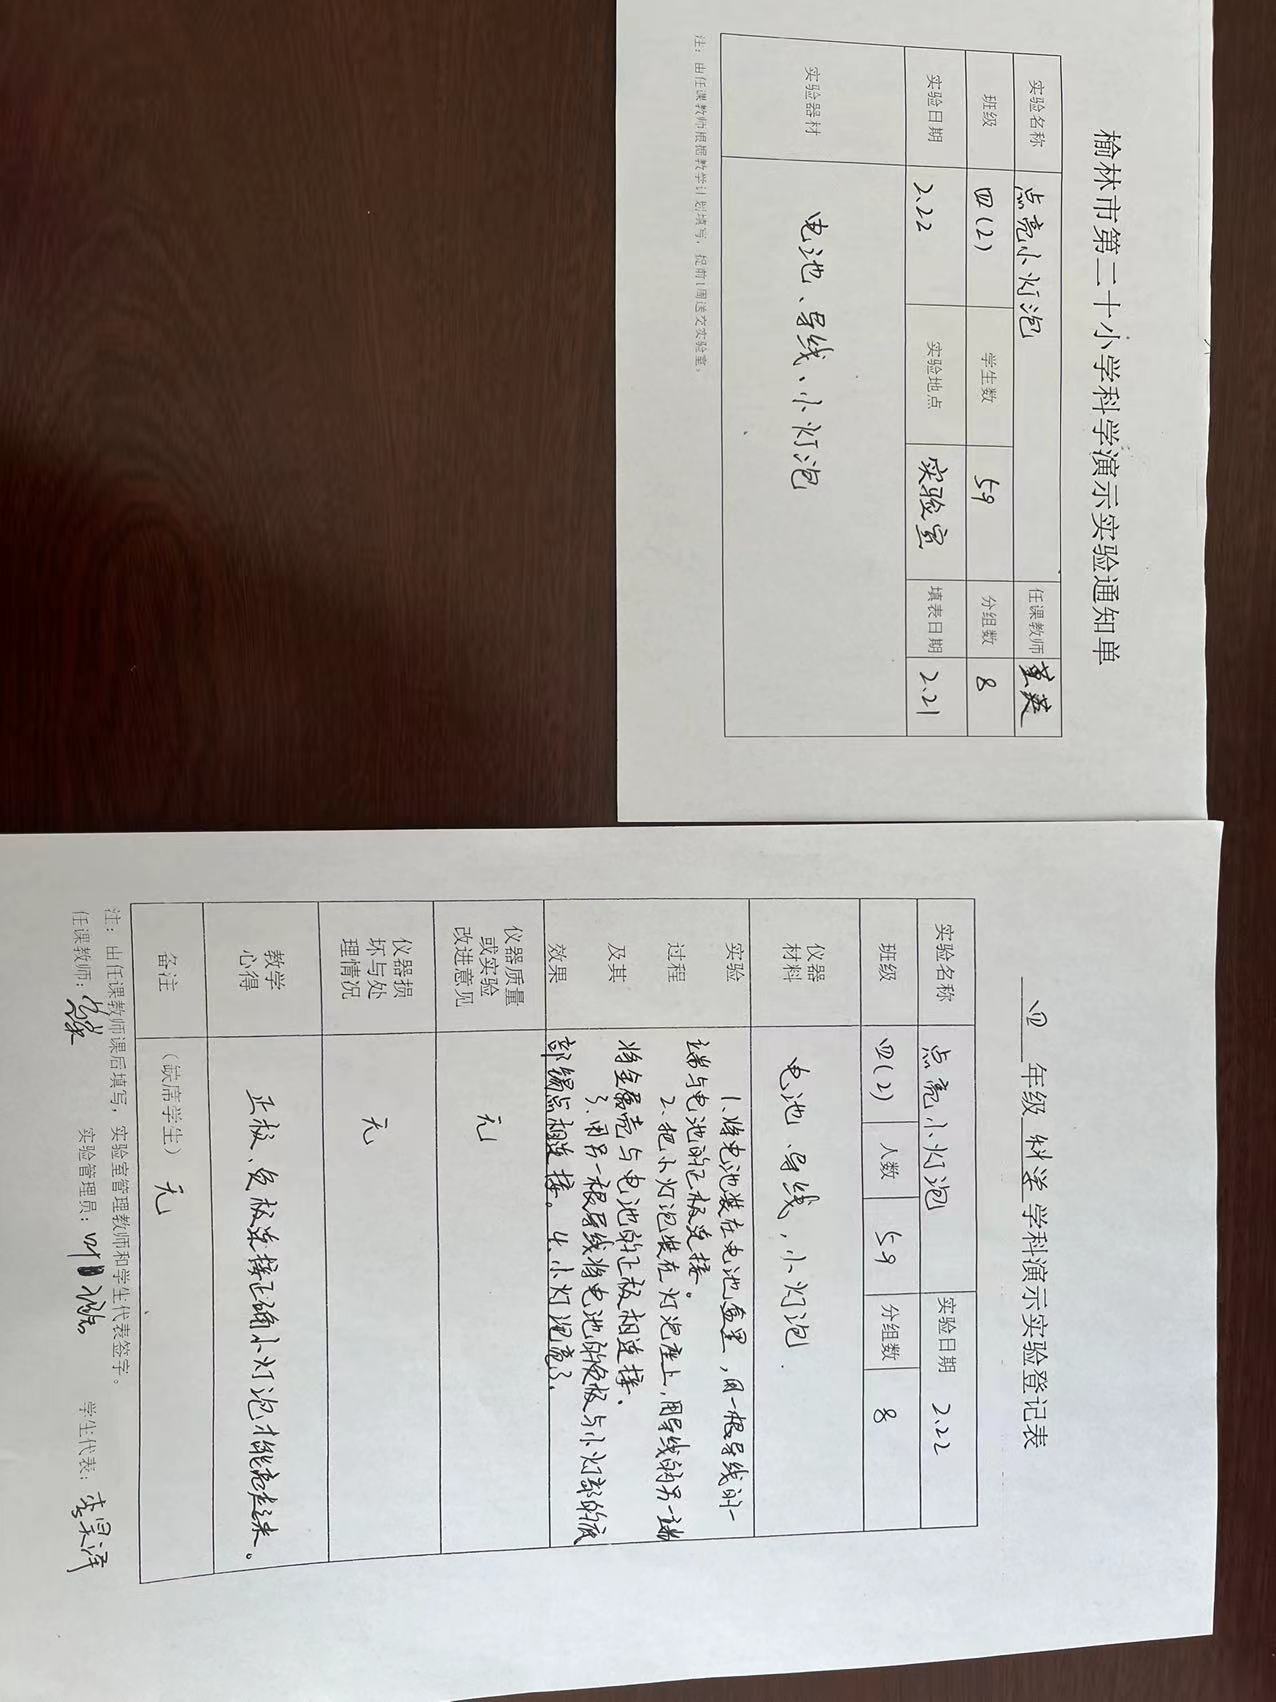 榆林市第二十小学科学演示实验通知单
实验名称 点亮小灯泡 任课教师
班级 四(2) 学生数 59 分组数 8
实验日期 2.22 实验地点 实验室 填表日期 2.21
实验器材 电池、导线、小灯泡
注：由任课教师根据教学计划填写，提前1周送交实验室。
四 年级 科学 学科演示实验登记表
实验名称 点亮小灯泡 实验日期 2.22
班级 四(2) 人数 59 分组数 8
仪器材料 电池、导线，小灯泡.
实验过程及其效果
1.将电池装在电池盒里，用一根导线的一
端与电池的正极连接。
2.把小灯泡装在灯泡座上,用导线的另一端
将金属壳与电池的正极相连接.
3.用另一根导线将电池的负极与小灯部的底
部锡点相连接。4.小灯泡亮了.
仪器质量或实验改进意见 无
仪器损坏与处理情况 无
教学心得 正极、负极连接正确小灯泡才能亮起来。
备注 (缺席学生) 无
注：由任课教师课后填写，实验室管理教师和学生代表签字。
任课教师: 实验管理员: 学生代表: 李昊泽